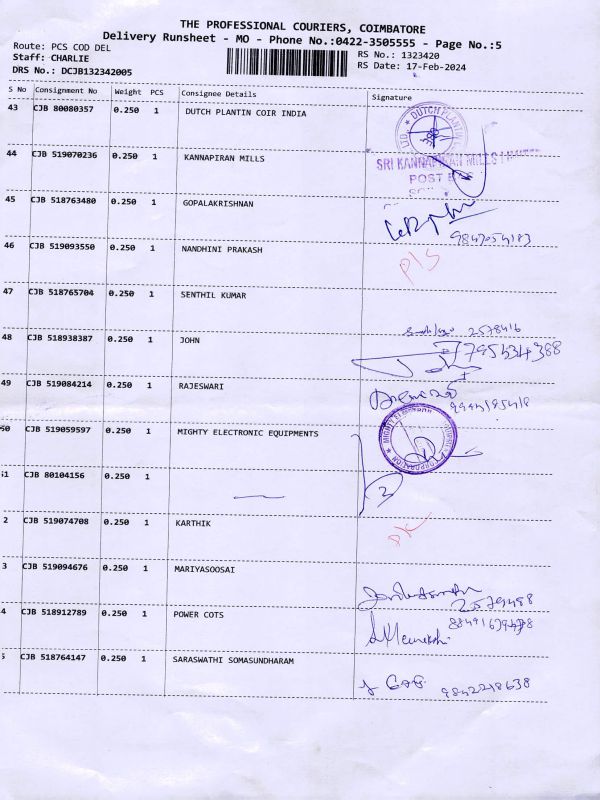 THE PROFESSIONAL COURIERS, COIMBATORE
Delivery Runsheet - MO - Phone No.:0422-3505555 - Page No.:5
Route: PCS COD DEL
Staff: CHARLIE
DRS No.: DCJB132342005
RS No.: 1323420
RS Date: 17-Feb-2024
S No Consignment No Weight PCS Consignee Details Signature
43 CJB 80080357 0.250 1 DUTCH PLANTIN COIR INDIA
44 CJB 519070236 0.250 1 KANNAPIRAN MILLS
SRI KANNAPIRAN MILLS
POST
45 CJB 518763480 0.250 1 GOPALAKRISHNAN
46 CJB 519093550 0.250 1 NANDHINI PRAKASH
P/S
47 CJB 518765704 0.250 1 SENTHIL KUMAR
2578416
48 CJB 518938387 0.250 1 JOHN
49 CJB 519084214 0.250 1 RAJESWARI
50 CJB 519059597 0.250 1 MIGHTY ELECTRONIC EQUIPMENTS
51 CJB 80104156 0.250 1
2 CJB 519074708 0.250 1 KARTHIK
3 CJB 519094676 0.250 1 MARIYASOOSAI
4 CJB 518912789 0.250 1 POWER COTS
5 CJB 518764147 0.250 1 SARASWATHI SOMASUNDHARAM
9842218638